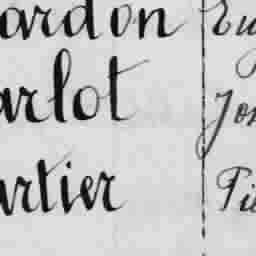 ardon Eu
arlot Jon
artier Fi